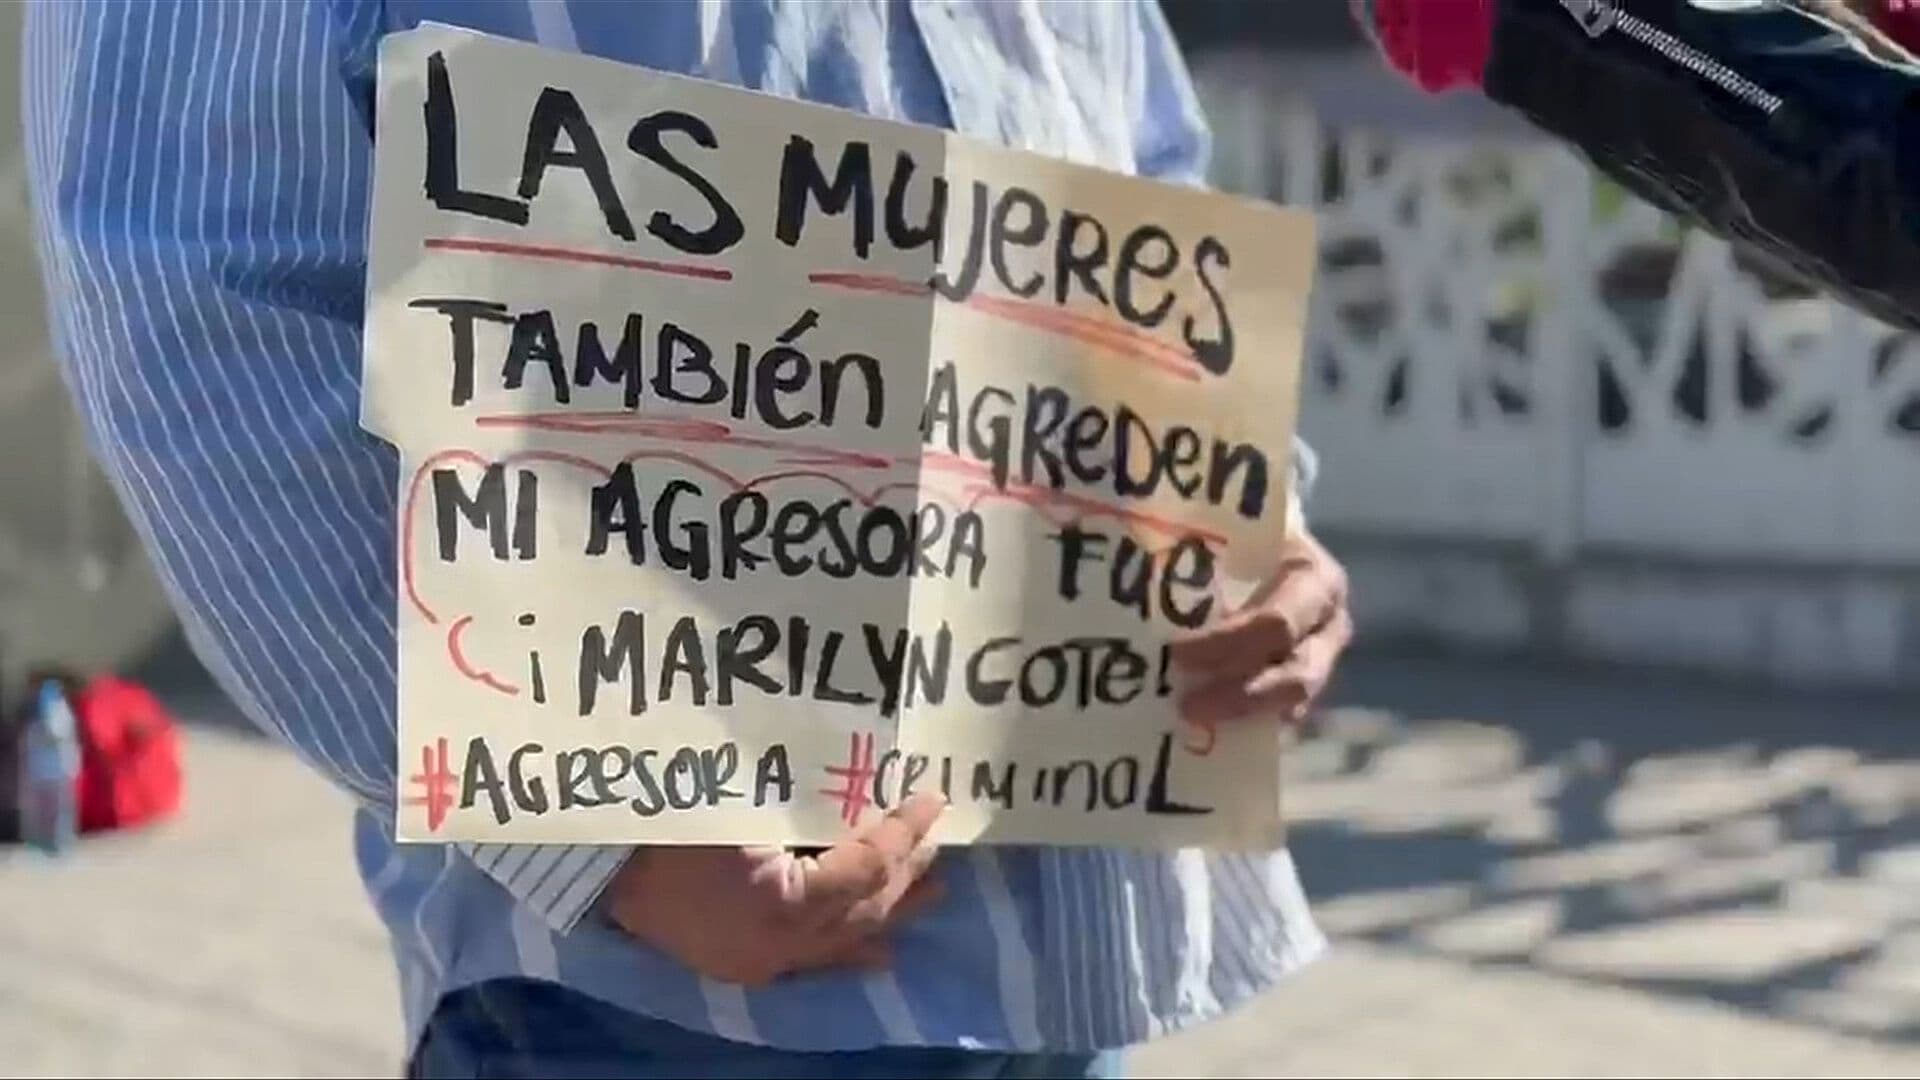 LAS MUJERES
TAMBIÉN AGREDEN
MI AGRESORA FUE
¡MARILYN COTE!
#AGRESORA #CRIMINAL